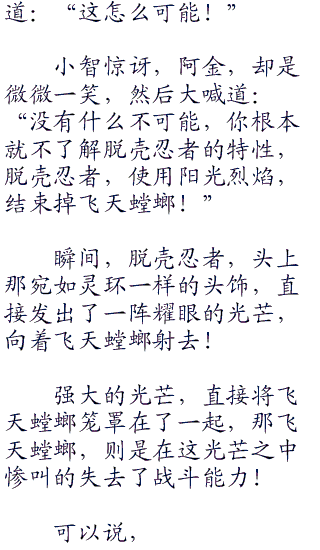 道：“这怎么可能！”
小智惊讶，阿金，却是
微微一笑，然后大喊道：
“没有什么不可能，你根本
就不了解脱壳忍者的特性，
脱壳忍者，使用阳光烈焰，
结束掉飞天螳螂！”
瞬间，脱壳忍者，头上
那宛如灵环一样的头饰，直
接发出了一阵耀眼的光芒，
向着飞天螳螂射去！
强大的光芒，直接将飞
天螳螂笼罩在了一起，那飞
天螳螂，则是在这光芒之中
惨叫的失去了战斗能力！
可以说，